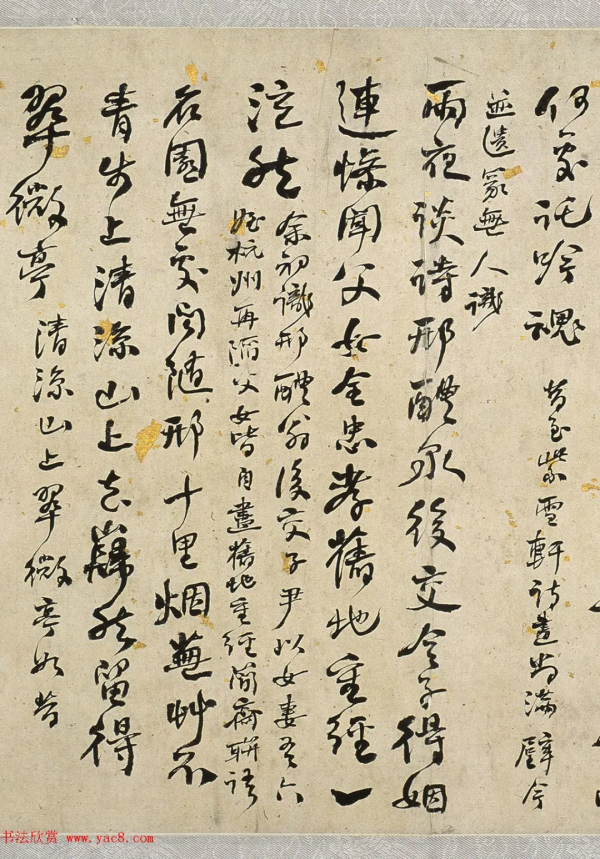 何處託吟魂 昔至紫雪軒詩畫尚滿壁今
並遺冢無人識
雨夜談詩邢醴泉後交令子得姻
連慘聞父女全忠孝舊地重經一
泫然 余初識邢醴翁後交子尹以女妻吾六
姪杭州再陷父女皆自盡舊地重經簡齋聯語
名園無處問隨邢十里烟蕪艸不
青步上清涼山上去巋然留得
翠微亭 清涼山上翠微亭如昔
书法欣赏 www.yac8.com